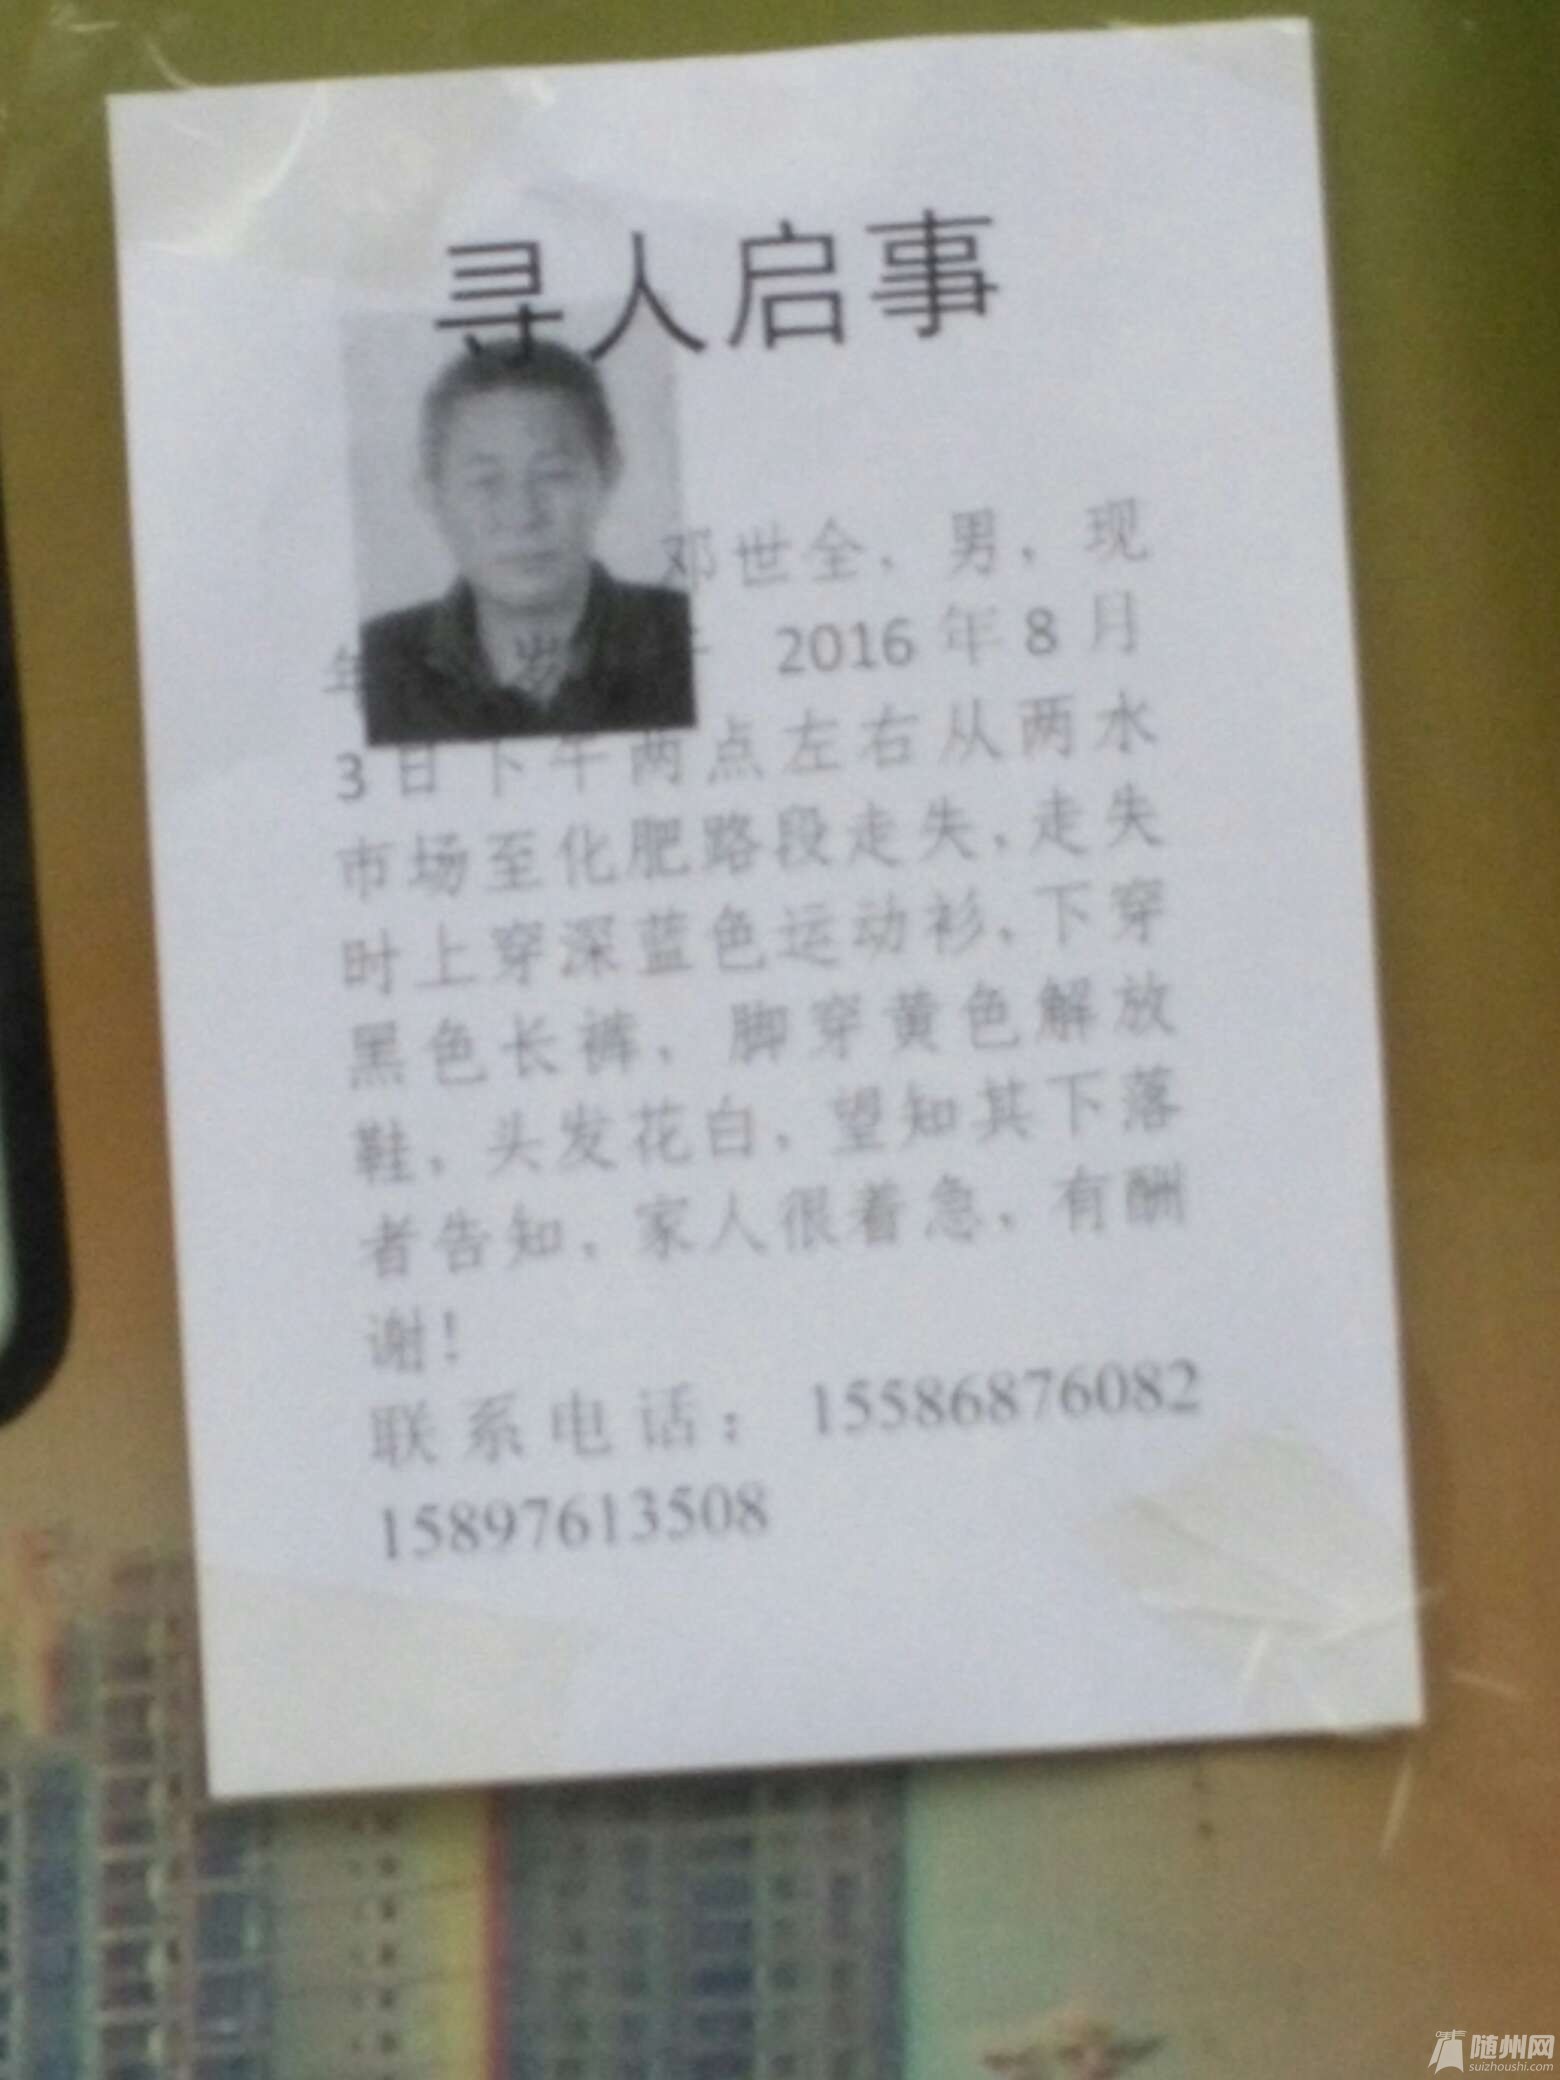 寻人启事
邓世全，男，现
年 岁 2016年8月
3日下午两点左右从两水
市场至化肥路段走失，走失
时上穿深蓝色运动衫，下穿
黑色长裤，脚穿黄色解放
鞋，头发花白，望知其下落
者告知，家人很着急，有酬
谢！
联系电话：15586876082
15897613508
随州网
suizhoushi.com